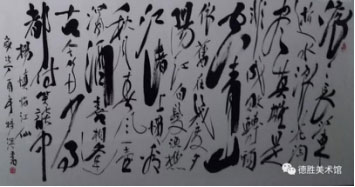 滚滚长江东
逝水浪花淘
尽英雄是
非成败转头
空青山
依旧在几度夕
阳红白发渔樵
江渚上惯看
秋月春风一壶
浊酒喜相逢
古今多少事
都付笑谈中
杨慎临江仙
德胜美术馆